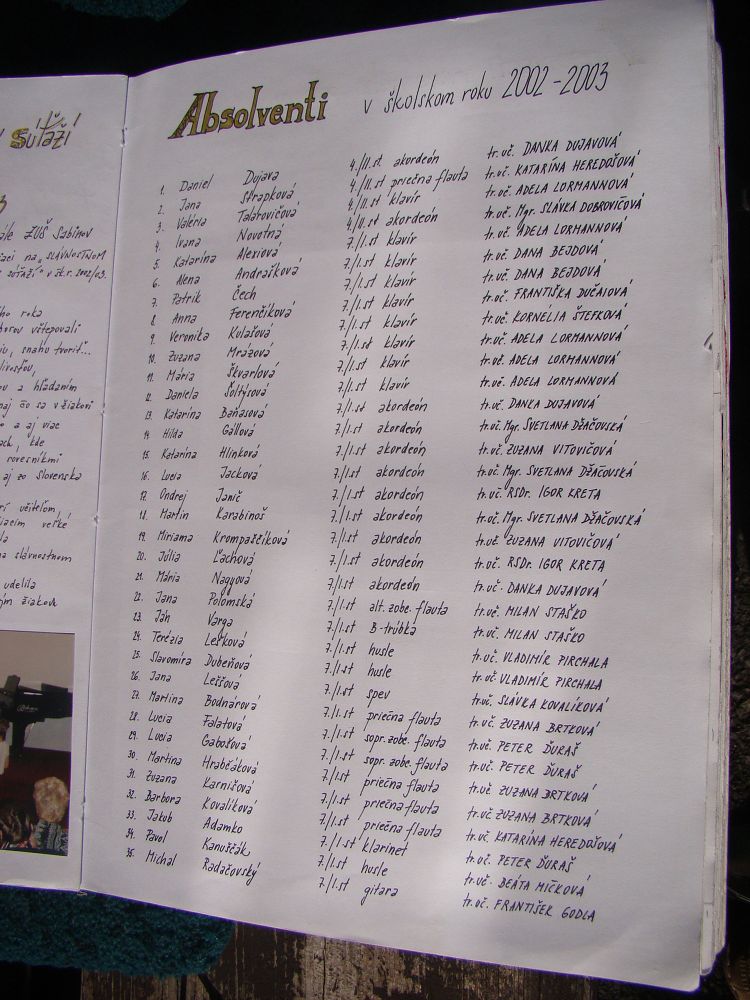 súťaží
ZUŠ Sabinov
na „SLÁVNOSTNOM
v šk.r. 2002/03.
ho roka
vštepovali
snahu tvoriť...
a hľadaním
čo sa v žiakoni
a aj viac
kde
rovesníkmi
aj zo Slovenska
učiteľom,
veľké
slávnostnom
udelila
žiakom
Absolventi v školskom roku 2002-2003
1. Daniel Dujava 4./II.st akordeón tr.uč. DANKA DUJAVOVÁ
2. Jana Strapková 4./II.st priečna flauta tr.uč. KATARÍNA HEREDOŠOVÁ
3. Valéria Talarovičová 4/II.st klavír tr.uč. ADELA LORMANNOVÁ
4. Ivana Novotná 4/II.st akordeón tr.uč. Mgr. SLÁVKA DOBROVIČOVÁ
5. Katarína Alexiová 7./I.st klavír tr.uč. ADELA LORMANNOVÁ
6. Alena Andrašková 7./I.st klavír tr.uč. DANA BEJDOVÁ
7. Patrik Čech 7./I.st klavír tr.uč. DANA BEJDOVÁ
8. Anna Ferenčíková 7./I.st klavír tr.uč. FRANTIŠKA DUČAIOVÁ
9. Veronika Kulašová 7./I.st klavír tr.uč. KORNELIA ŠTEFKOVÁ
10. Zuzana Mrazová 7./I.st klavír tr.uč. ADELA LORMANNOVÁ
11. Mária Škvarlová 7./I.st klavír tr.uč. ADELA LORMANNOVÁ
12. Daniela Šoltýsová 7./I.st klavír tr.uč. ADELA LORMANNOVÁ
13. Katarína Baňasová 7./I.st akordeón tr.uč. DANKA DUJAVOVÁ
14. Hilda Gállová 7./I.st akordeón tr.uč. Mgr. SVETLANA DŽAČOVSKÁ
15. Katarína Hlinková 7./I.st akordeón tr.uč. ZUZANA VITOVIČOVÁ
16. Lucia Jacková 7./I.st akordeón tr.uč. Mgr. SVETLANA DŽAČOVSKÁ
17. Ondrej Janič 7./I.st akordeón tr.uč. RSDr. IGOR KRETA
18. Martin Karabinoš 7./I.st akordeón tr.uč. Mgr. SVETLANA DŽAČOVSKÁ
19. Miriama Krompaščíková 7./I.st akordeón tr.uč. ZUZANA VITOVIČOVÁ
20. Júlia Ľachová 7./I.st akordeón tr.uč. RSDr. IGOR KRETA
21. Mária Nagyová 7./I.st akordeón tr.uč. DANKA DUJAVOVÁ
22. Jana Polomská 7./I.st alt. zobc. flauta tr.uč. MILAN STAŠKO
23. Ján Varga 7./I.st B-trúbka tr.uč. MILAN STAŠKO
24. Terézia Lešková 7./I.st husle tr.uč. VLADIMÍR PIRCHALA
25. Slavomíra Dubeňová 7./I.st husle tr.uč. VLADIMÍR PIRCHALA
26. Jana Leššová 7./I.st spev tr.uč. SLÁVKA KOVALÍKOVÁ
27. Martina Bodnárová 7./I.st priečna flauta tr.uč. ZUZANA BRTKOVÁ
28. Lucia Falatová 7./I.st sopr. zobc. flauta tr.uč. PETER ĎURAŠ
29. Lucia Gabošová 7./I.st sopr. zobc. flauta tr.uč. PETER ĎURAŠ
30. Martina Hrabčáková 7./I.st priečna flauta tr.uč. ZUZANA BRTKOVÁ
31. Zuzana Karnišová 7./I.st priečna flauta tr.uč. ZUZANA BRTKOVÁ
32. Barbora Kovalíková 7./I.st priečna flauta tr.uč. KATARÍNA HEREDOŠOVÁ
33. Jakub Adamko 7./I.st klarinet tr.uč. PETER ĎURAŠ
34. Pavol Kanuščák 7./I.st husle tr.uč. BEÁTA MIČKOVÁ
35. Michal Radačovský 7./I.st gitara tr.uč. FRANTIŠEK GODLA